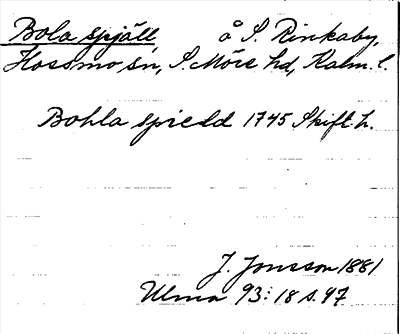 Bola spjäll å S. Rinkaby,
Hossmo sn, S. Möre hd, Kalm. l.
Bohla spiedd 1745 Skift. h.
J. Jonsson 1881
Ulma 93:18 s. 47